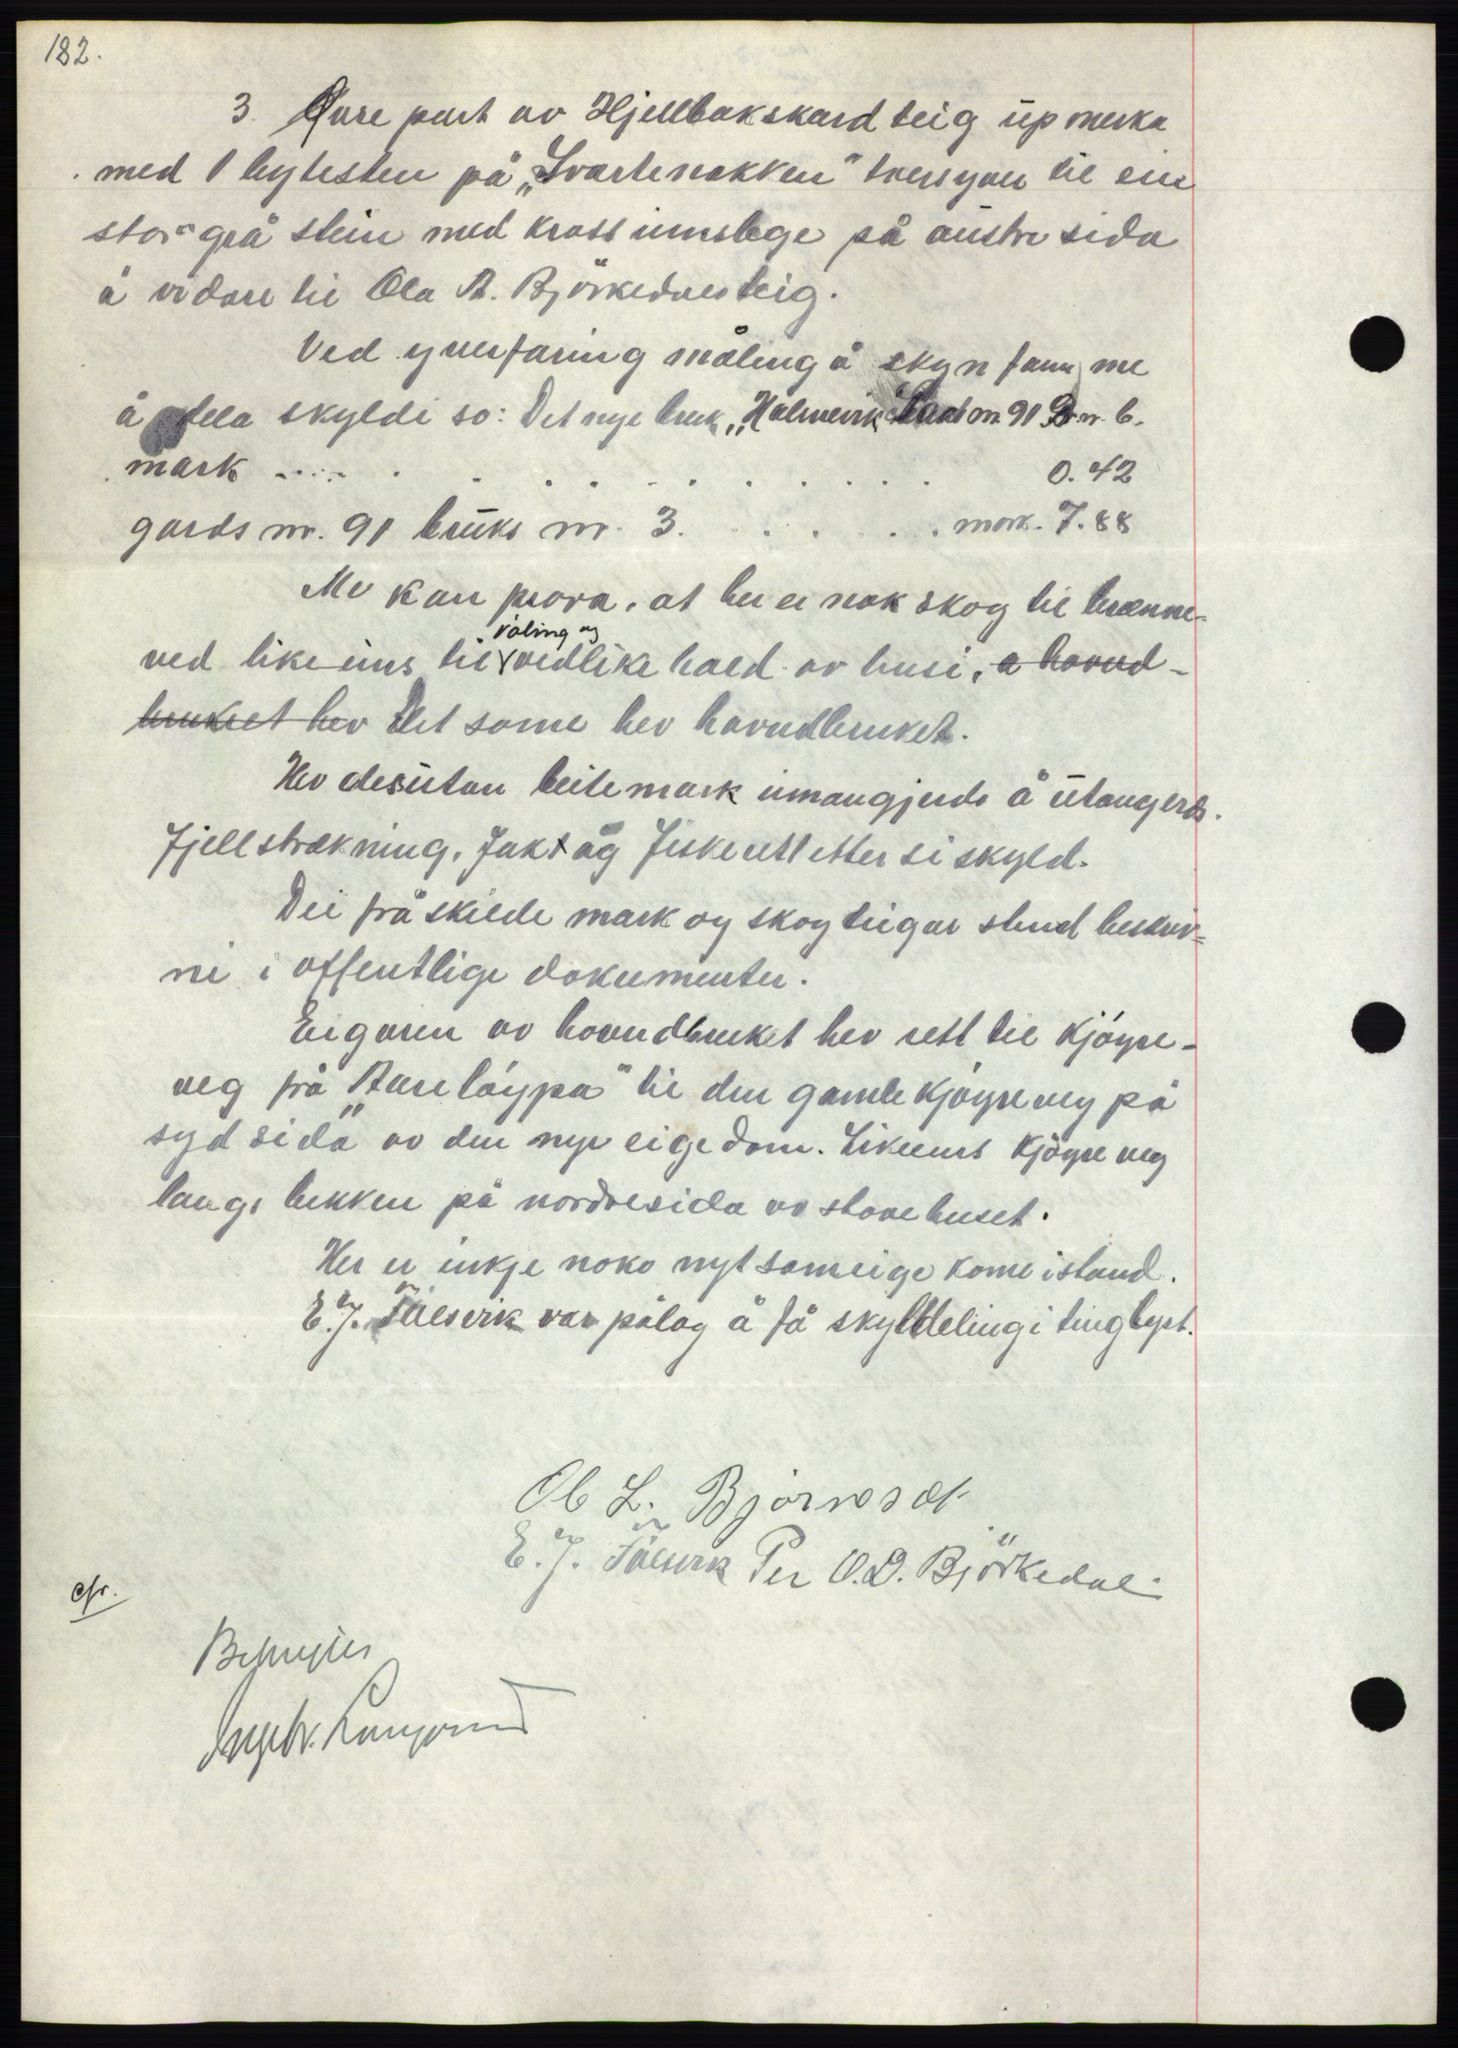 182.
3. Øvre part av Hjellbakskard teig upmerka
med 1 bytesten på „Svartenakken" tversyver til ein
stor grå stein med kross innslege på austre sida
å vidare til Ola A. Björkedals teig.
Ved yverfaring måling å skyn fann me
å dela skyldi so: Det nye bruk „Holmevik" Gard nr 91 B nr. 6.
mark ..... . . . . . . . . . . 0.42
gards nr. 91 bruks nr. 3. . . . . . mark. 7.88
Me kan prova, at her er nok skog til brenne-
ved like eins til vøling og vedlike hald av husi, a hovud-
bruket hev Det same hev hovudbruket.
Hev desutan beitemark innangjerds å utangerds.
Fjellstrækning. Jakt og Fiskerett etter si skyld.
Dei fråskilde mark og skogteigar stend beskriv-
ne i offentlige dokumenter.
Eigaren av hovudbruket hev rett til Kjöyre-
veg frå "Aureløypa" til den gamle Kjøyreveg på
syd sida av den nye eigedom. Likeeins Kjöyre veg
langs bekken på nordresida av stovehuset.
Her er inkje noko nyt sameige kome istand.
E. J. Fålsvik var pålag å få skylddelingi tinglyst.
Ob L. Bjørnset
E. J. Fålsvik Per O. D. Björkedal
cfr.